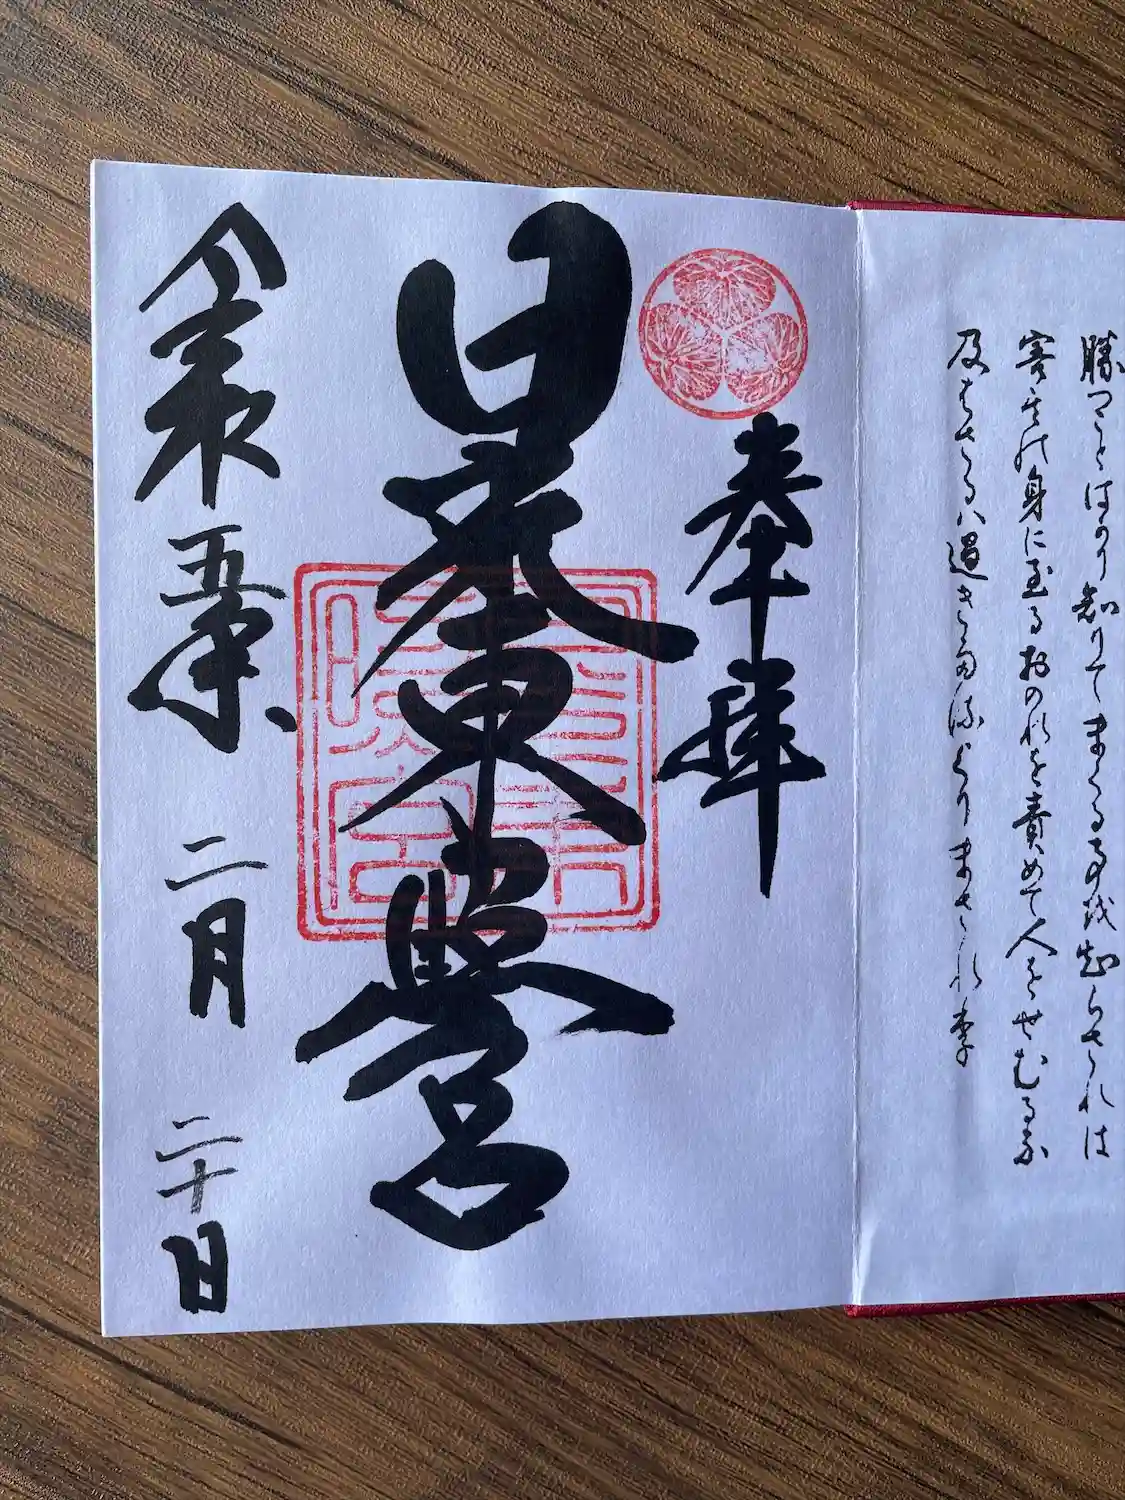 勝つことはかり知りてまくる事を知らされは
害其の身に至るおのれを責めて人をせむるな
及はさるハ過きたるよりまされり
奉拝
日光東照宮
令和五年 二月 二十日